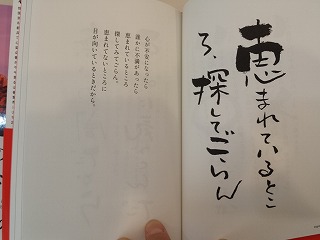 恵まれているとこ
ろ、探してごらん
心が不安になったら
誰かに不満があったら
恵まれているところ
探してみてごらん。
恵まれてないところに
目が向いているときだから。